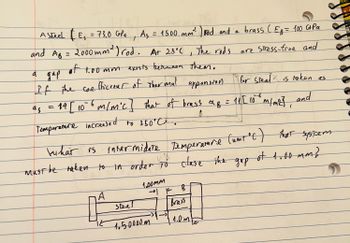 A steel { Es = 75.0 GPa , As = 1500 mm² } Rod and a brass ( EB = 100 GPa
and AB = 2000 mm² ) rod. At 25°C , The rods are stress-free and
a gap of 1.00 mm exists between them.
If the coefficient of thermal expansion for steel is taken as
as = 19 [ 10⁻⁶ m/m°C ] that of brass αB = 11 [ 10⁻⁶ m/m°C } , and
Temperature increased to 350°C .
What is intermidate Temperature (unit °C) that system
must be taken to in order to close the gap of 1.00 mm?
1.00mm
A
B
steel
Brass
1.50000m
1.0m